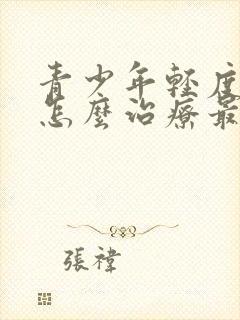 青少年輕度
怎麼治療最
張禕